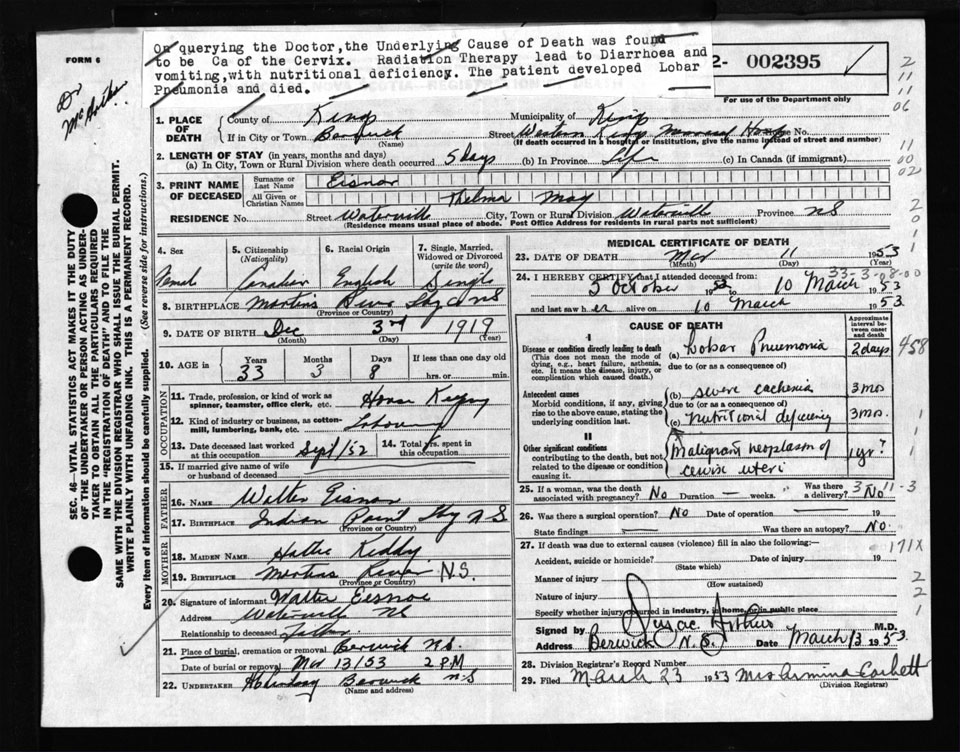 On querying the Doctor,the Underlying Cause of Death was found
to be Ca of the Cervix. Radiation Therapy lead to Diarrhoea and
vomiting,with nutritional deficiency. The patient developed Lobar
Pneumonia and died.
FORM 6
2- 002395
For use of the Department only
Dr McArthur
2
11
11
06
1. PLACE OF DEATH
County of Kings
Municipality of Kings
If in City or Town Berwick
(Name)
Street Western Kings Memorial House No.
(If death occurred in a hospital or institution, give the name instead of street and number)
2. LENGTH OF STAY (in years, months and days)
(a) In City, Town or Rural Division where death occurred 5 days (b) In Province Life (c) in Canada (if immigrant)
11
00
02
3. PRINT NAME OF DECEASED
Surname or Last Name Eisnor
All Given or Christian Names Thelma May
RESIDENCE No. Street Waterville City, Town or Rural Division Waterville Province NS
(Residence means usual place of abode. Post Office Address for residents in rural parts not sufficient)
SEC. 46—VITAL STATISTICS ACT MAKES IT THE DUTY
OF THE UNDERTAKER OR PERSON ACTING AS UNDER-
TAKER TO OBTAIN ALL THE PARTICULARS REQUIRED
IN THE "REGISTRATION OF DEATH" AND TO FILE THE
SAME WITH THE DIVISION REGISTRAR WHO SHALL ISSUE THE BURIAL PERMIT.
WRITE PLAINLY WITH UNFADING INK. THIS IS A PERMANENT RECORD.
Every item of information should be carefully supplied. (See reverse side for instructions.)
4. Sex
Femal
5. Citizenship
(Nationality)
Canadian
6. Racial Origin
English
7. Single, Married,
Widowed or Divorced
(write the word)
Single
8. BIRTHPLACE Martins River NS
(Province or Country)
9. DATE OF BIRTH Dec 3rd 1919
(Month) (Day) (Year)
10. AGE in
Years Months Days If less than one day old
33 3 8 hrs. or min.
OCCUPATION
11. Trade, profession, or kind of work as
spinner, teamster, office clerk, etc. House Keeping
12. Kind of industry or business, as cotton-
mill, lumbering, bank, etc.
13. Date deceased last worked
at this occupation Sept/52
14. Total yrs. spent in
this occupation
15. If married give name of wife
or husband of deceased
FATHER
16. NAME Walter Eisnor
17. BIRTHPLACE Indian Point NS
(Province or Country)
MOTHER
18. MAIDEN NAME Hattie Keddy
19. BIRTHPLACE Martins River N.S.
(Province or Country)
20. Signature of informant Walter Eisnor
Address Waterville NS
Relationship to deceased father
21. Place of burial, cremation or removal Berwick NS.
Date of burial or removal Mar 13/53 2 PM
22. UNDERTAKER Berwick NS
(Name and address)
MEDICAL CERTIFICATE OF DEATH
23. DATE OF DEATH Mar 11 1953
(Month) (Day) (Year)
33-3-08-00
24. I HEREBY CERTIFY that I attended deceased from:
5 October 1952 to 10 March 1953
and last saw her alive on 10 March 1953.
CAUSE OF DEATH
Approximate
interval be-
tween onset
and death
I
Disease or condition directly leading to death
(This does not mean the mode of
dying, e.g., heart failure, asthenia,
etc. It means the disease, injury, or
complication which caused death.)
(a) Lobar Pneumonia 2 days
due to (or as a consequence of)
458
Antecedent causes
Morbid conditions, if any, giving
rise to the above cause, stating the
underlying condition last.
(b) severe cachexia 3 mos
due to (or as a consequence of)
(c) nutritional deficiency 3 mos.
II
Other significant conditions
contributing to the death, but not
related to the disease or condition
causing it.
Malignant neoplasm of
cervix uteri
1 yr ?
25. If a woman, was the death
associated with pregnancy? No Duration — weeks. Was there
a delivery? No
3-11-3
26. Was there a surgical operation? No Date of operation — 19
State findings — Was there an autopsy? No.
27. If death was due to external causes (violence) fill in also the following:—
171X
Accident, suicide or homicide? Date of injury 19
(State which)
Manner of injury
(How sustained)
Nature of injury
Specify whether injury occurred in industry, in home, or in public place
Signed by Arthur M.D.
Address Berwick N.S. Date March 13 1953.
28. Division Registrar's Record Number
29. Filed March 23 1953 Mrs Armina Corbett
(Division Registrar)